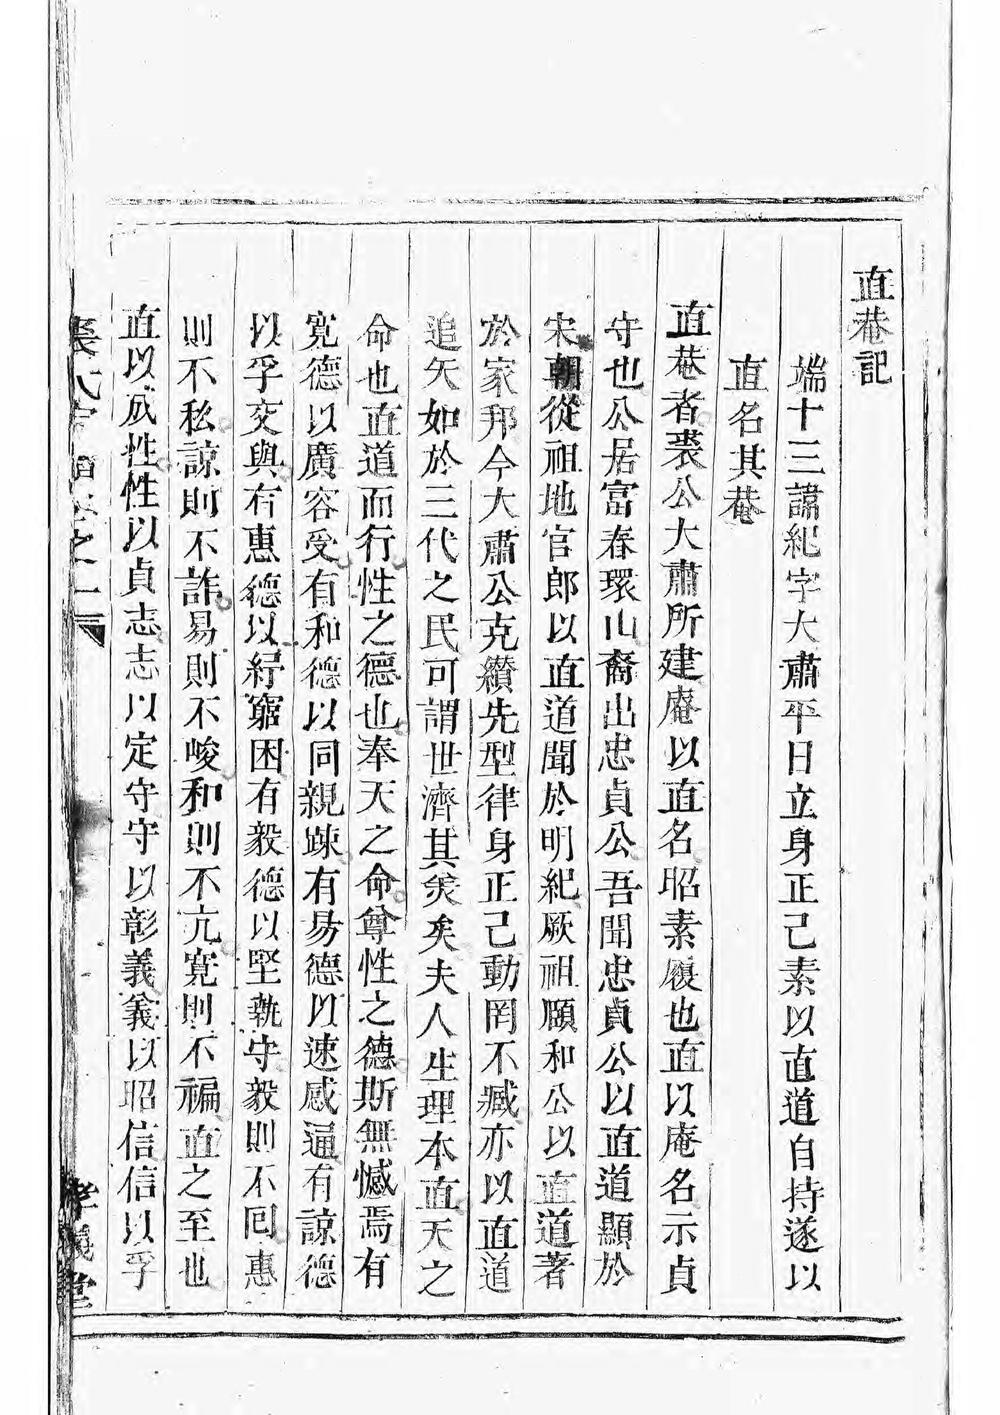 直菴記
端十三諱紀字大肅平日立身正己素以直道自持遂以
直名其菴
直菴者裘公大肅所建庵以直名昭素履也直以庵名示貞
守也公居富春環山裔出忠貞公吾聞忠貞公以直道顯於
宋朝從祖地官郎以直道聞於明紀厥祖頤和公以直道著
於家邦今大肅公克纘先型律身正己動罔不臧亦以直道
追矢如於三代之民可謂世濟其美矣夫人生理本直天之
命也直道而行性之德也奉天之命尊性之德斯無憾焉有
寛德以廣容受有和德以同親踈有易德以速感逼有諒德
以孚交與有惠德以紓窮困有毅德以堅執守毅則不回惠
則不私諒則不詐易則不峻和則不亢寛則不褊直之至也
直以成性性以貞志志以定守守以彰義義以昭信信以孚
裘氏宗譜卷之一
孝義堂